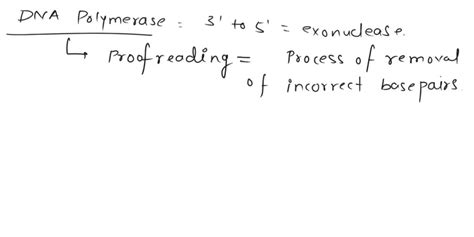 DNA Polymerase = 3' to 5' = exonuclease.
↳ Proofreading = Process of removal
of incorrect basepairs